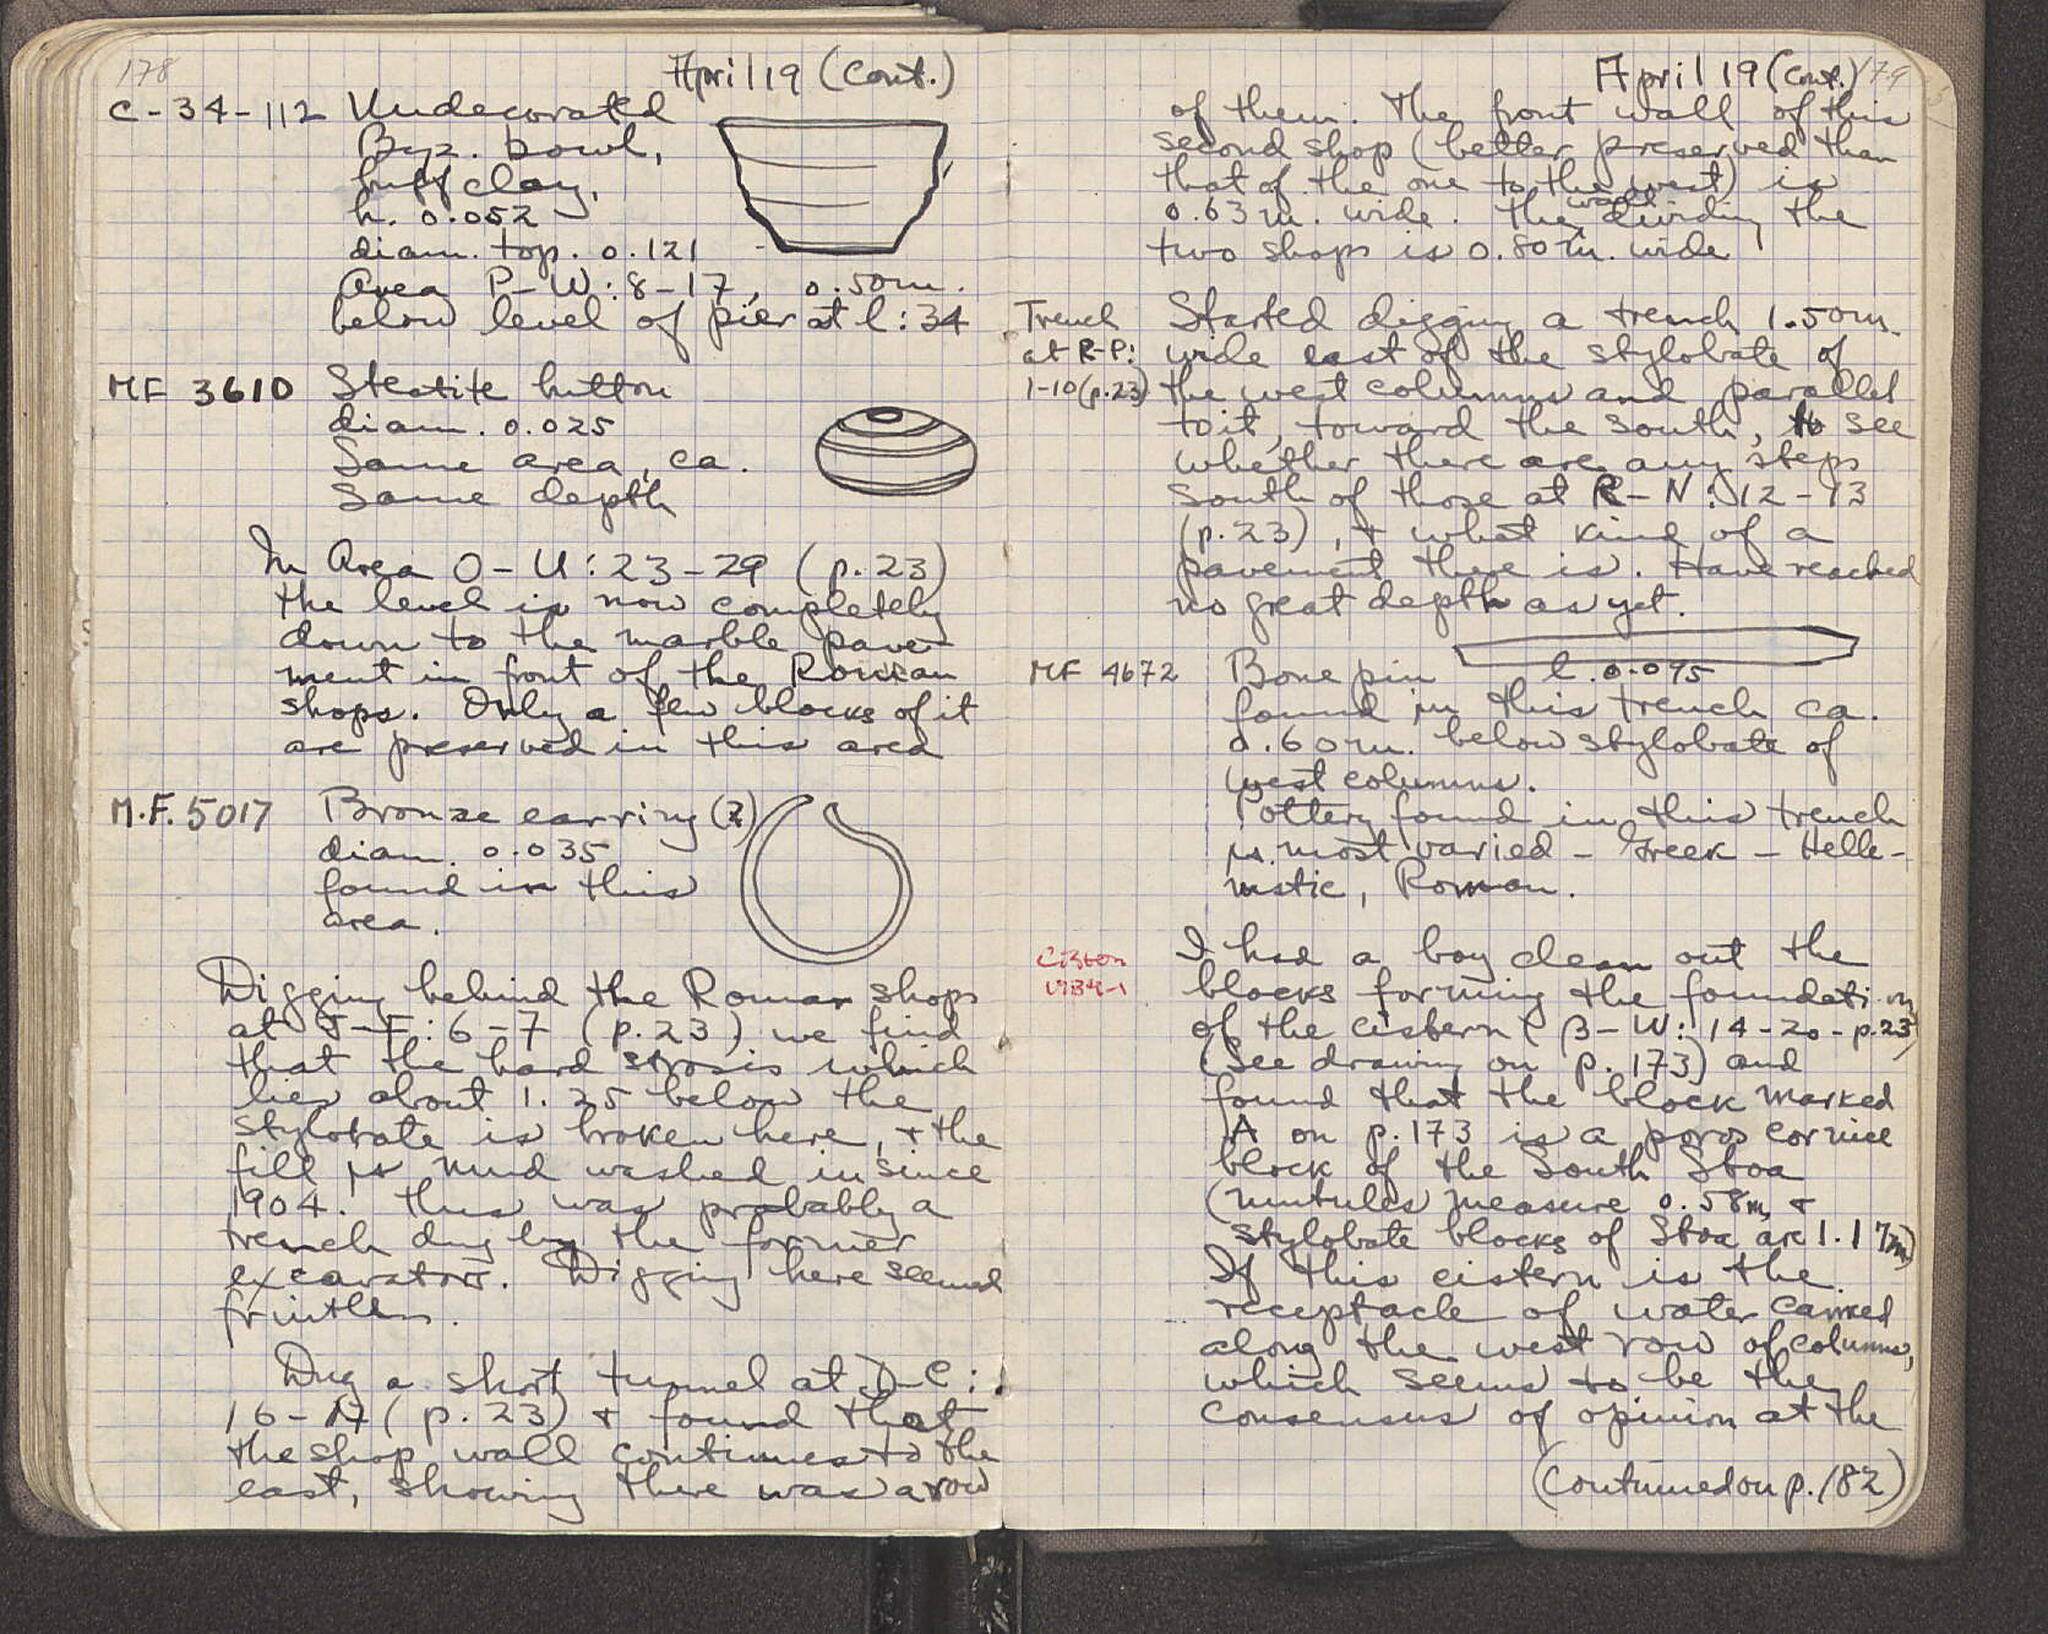 178
April 19 (Cont.)
C-34-112 Undecorated
Byz. bowl,
buff clay,
h. 0.052
diam. top. 0.121
Area P-W:8-17, 0.50m.
below level of pier at l:34
MF 3610 Steatite button
diam. 0.025
Same area, ca.
same depth
In Area O-U:23-29 (p.23)
the level is now completely
down to the marble pave-
ment in front of the Roman
shops. Only a few blocks of it
are preserved in this area
M.F. 5017 Bronze earring (?)
diam. 0.035
found in this
area.
Digging behind the Roman shops
at J-F:6-7 (p.23) we find
that the hard stosis which
lies about 1.25 below the
stylobate is broken here, + the
fill is mud washed in since
1904. This was probably a
trench dug by the former
excavators. Digging here seemed
fruitless.
Dug a short tunnel at D-C:
16-17 (p.23) + found that
the shop wall continues to the
east, showing there was a row
April 19 (Cont.) 179
of them. The front wall of this
second shop (better preserved than
that of the one to the west) is
0.63 m. wide. The wall dividing the
two shops is 0.80 m. wide
Trench
at R-P:
1-10 (p.23)
Started digging a trench 1.50m.
wide east of the stylobate of
the west columns and parallel
to it, toward the south, to see
whether there are any steps
south of those at R-N:12-13
(p.23), + what kind of a
pavement there is. Have reached
no great depth as yet.
MF 4672 Bone pin l. 0.095
found in this trench ca.
0.60m. below stylobate of
west columns.
Pottery found in this trench
is most varied - Greek - Helle-
nistic, Roman.
Cistern
1934-1
I had a boy clean out the
blocks forming the foundation
of the cistern (β-W:14-20-p.23)
(see drawing on p.173) and
found that the block marked
A on p.173 is a poros cornice
block of the South Stoa
(mutules measure 0.58m, +
stylobate blocks of Stoa are 1.17m)
If this cistern is the
receptacle of water carried
along the west row of columns,
which seems to be the
consensus of opinion at the
(Continued on p. 182)